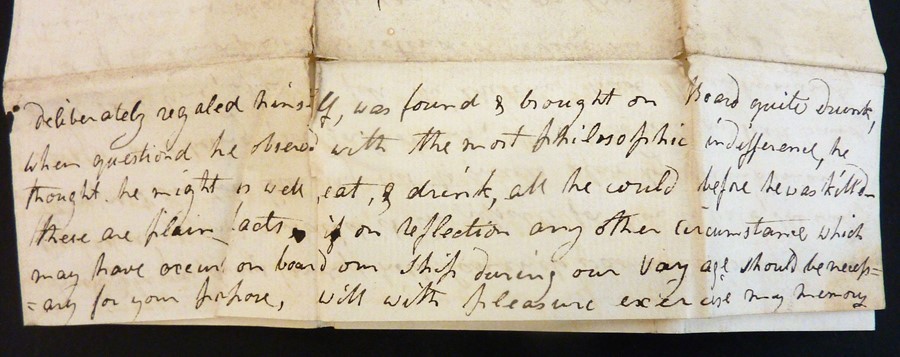 deliberately regaled himself, was found & brought on Board quite drunk,
when questiond he observd with the most philosophic indifference, he
thought he might as well eat, & drink, all he could before he was killd–
these are plain facts, if on reflection any other Circumstance which
may have occurd on board our Ship during our Voyage should be necess=
=ary for your purpose, will with pleasure exercise my memory